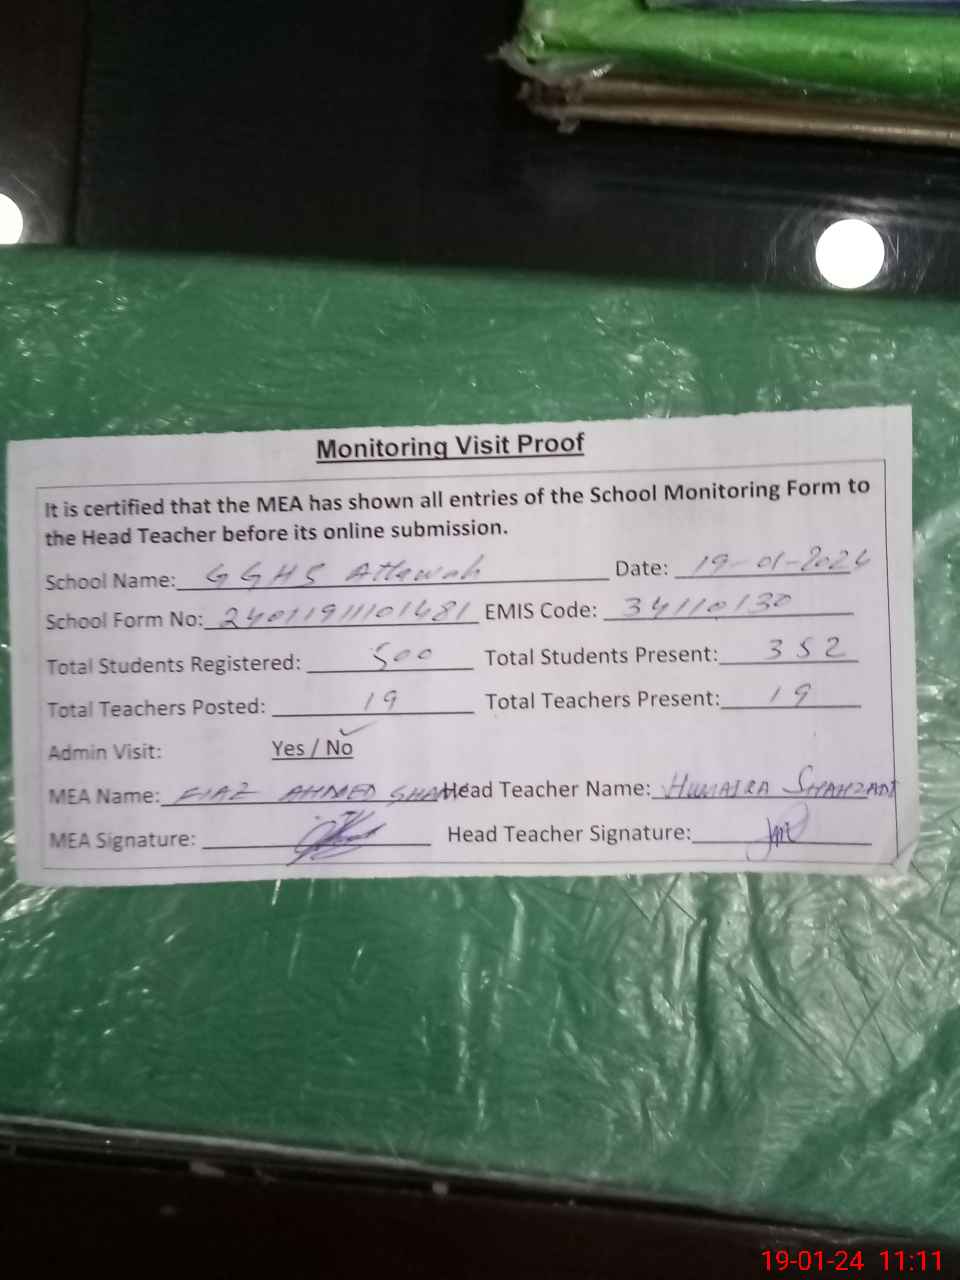 Monitoring Visit Proof
It is certified that the MEA has shown all entries of the School Monitoring Form to
the Head Teacher before its online submission.
School Name: GGHS Attawah Date: 19-01-2024
School Form No: 24011911101481 EMIS Code: 34110130
Total Students Registered: 500 Total Students Present: 352
Total Teachers Posted: 19 Total Teachers Present: 19
Admin Visit: Yes / No
MEA Name: FIAZ AHMED Head Teacher Name: HUMAIRA SHAHZADI
MEA Signature: Head Teacher Signature:
19-01-24 11:11